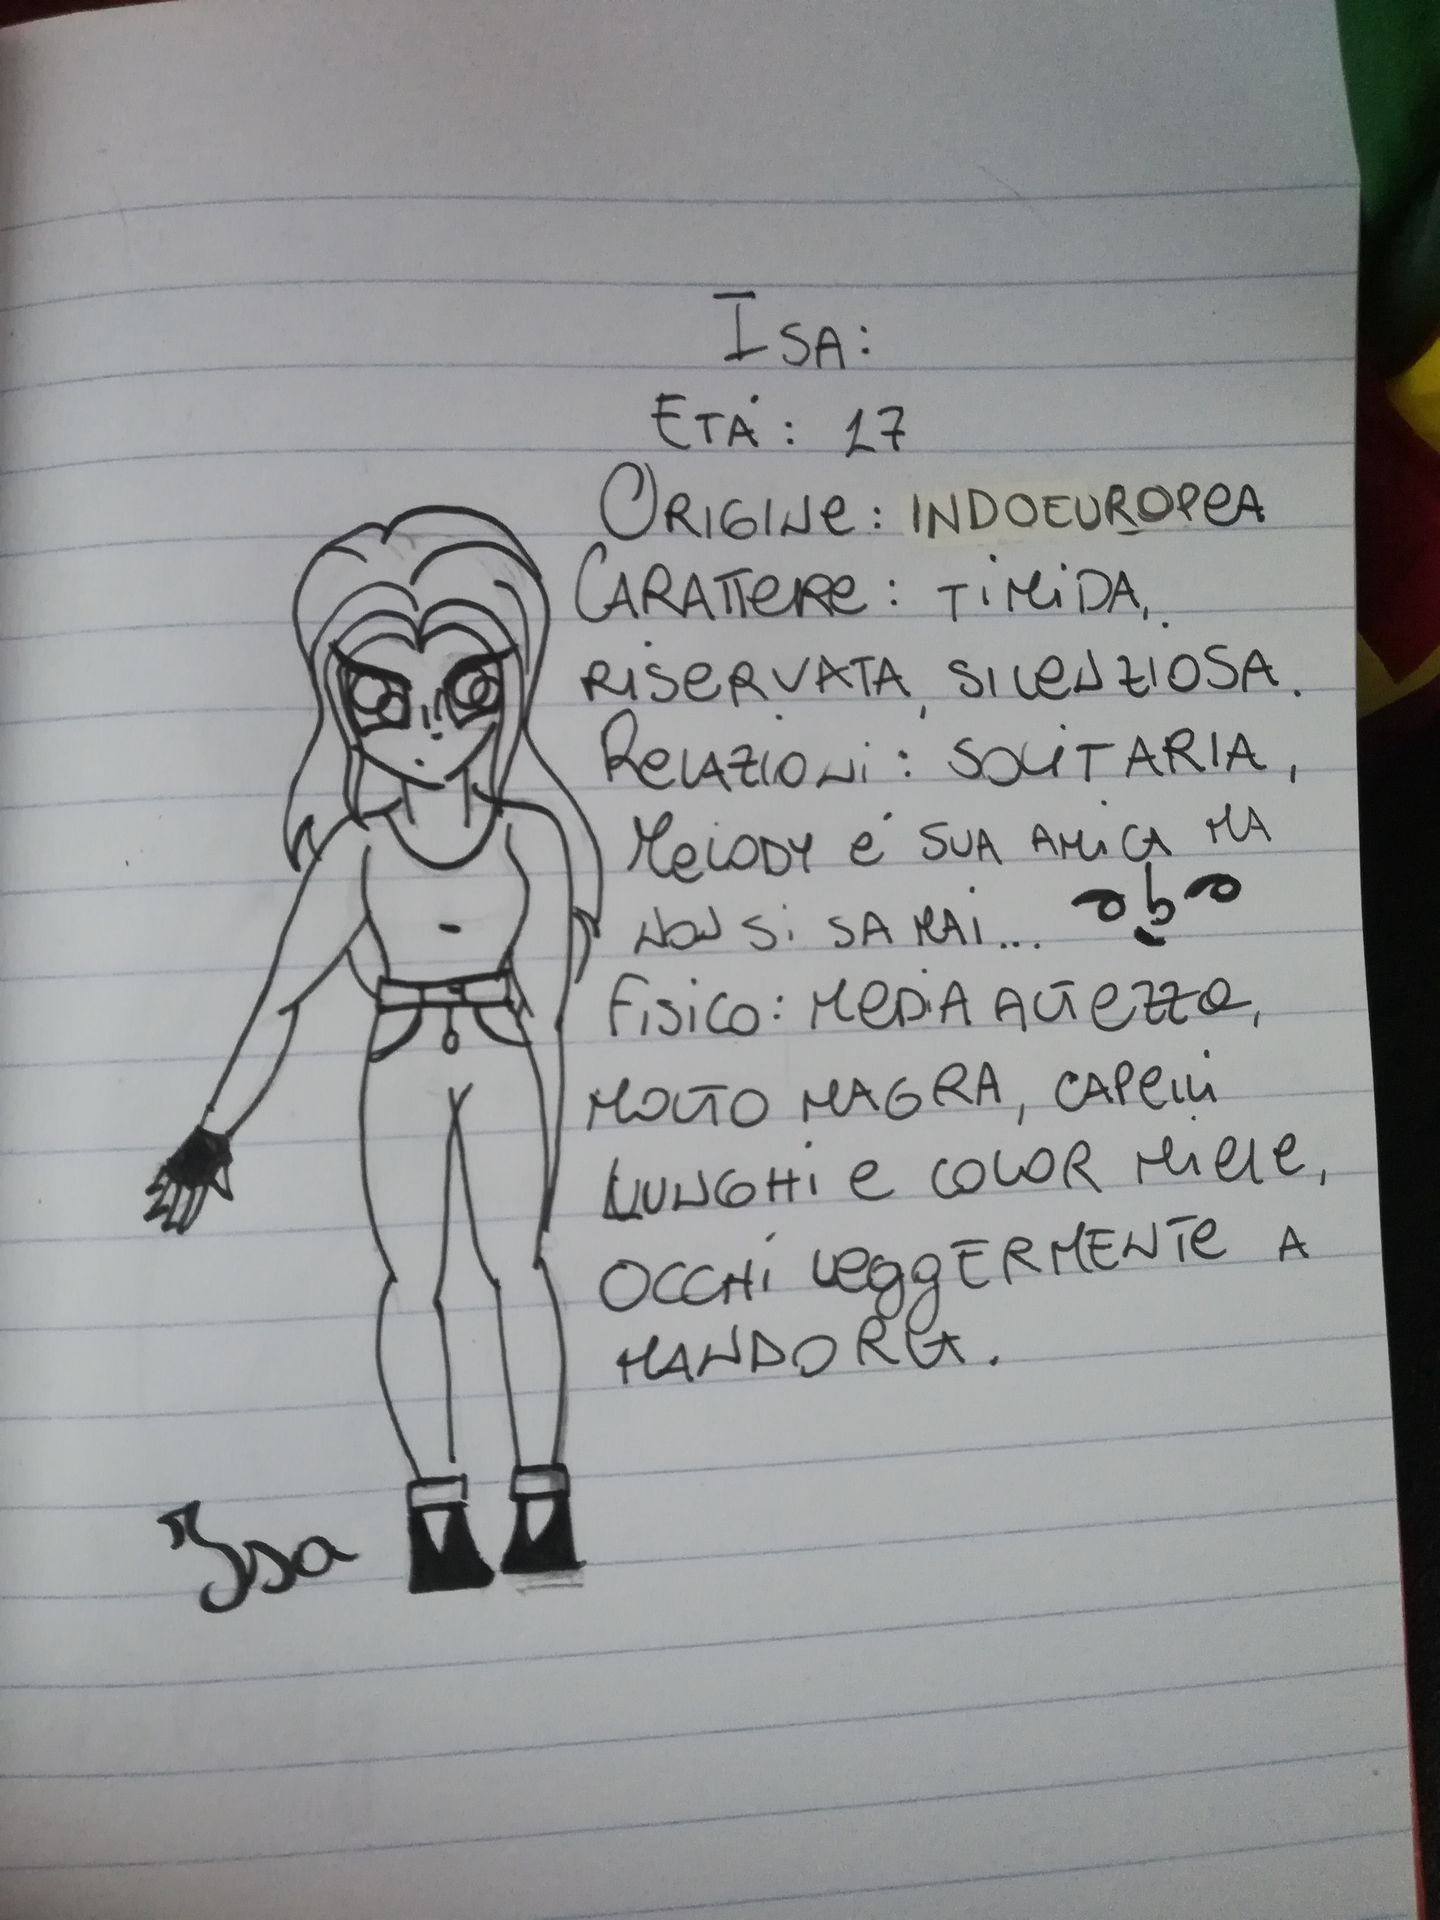 Isa:
Età: 17
Origine: INDOEUROPEA
CARATTERE: TiMiDA,
RiSERVATA, SILENZIOSA.
RELAZIONI: SOLITARIA,
MELODY é SUA AMiCA MA
NON Si SA MAI...
Fisico: MEDiA ALTEZZA,
MOLTO MAGRA, CAPELLi
LUNGHi e COLOR MiELE,
OCCHi LeggERMENTE A
MANDORLA.
Isa